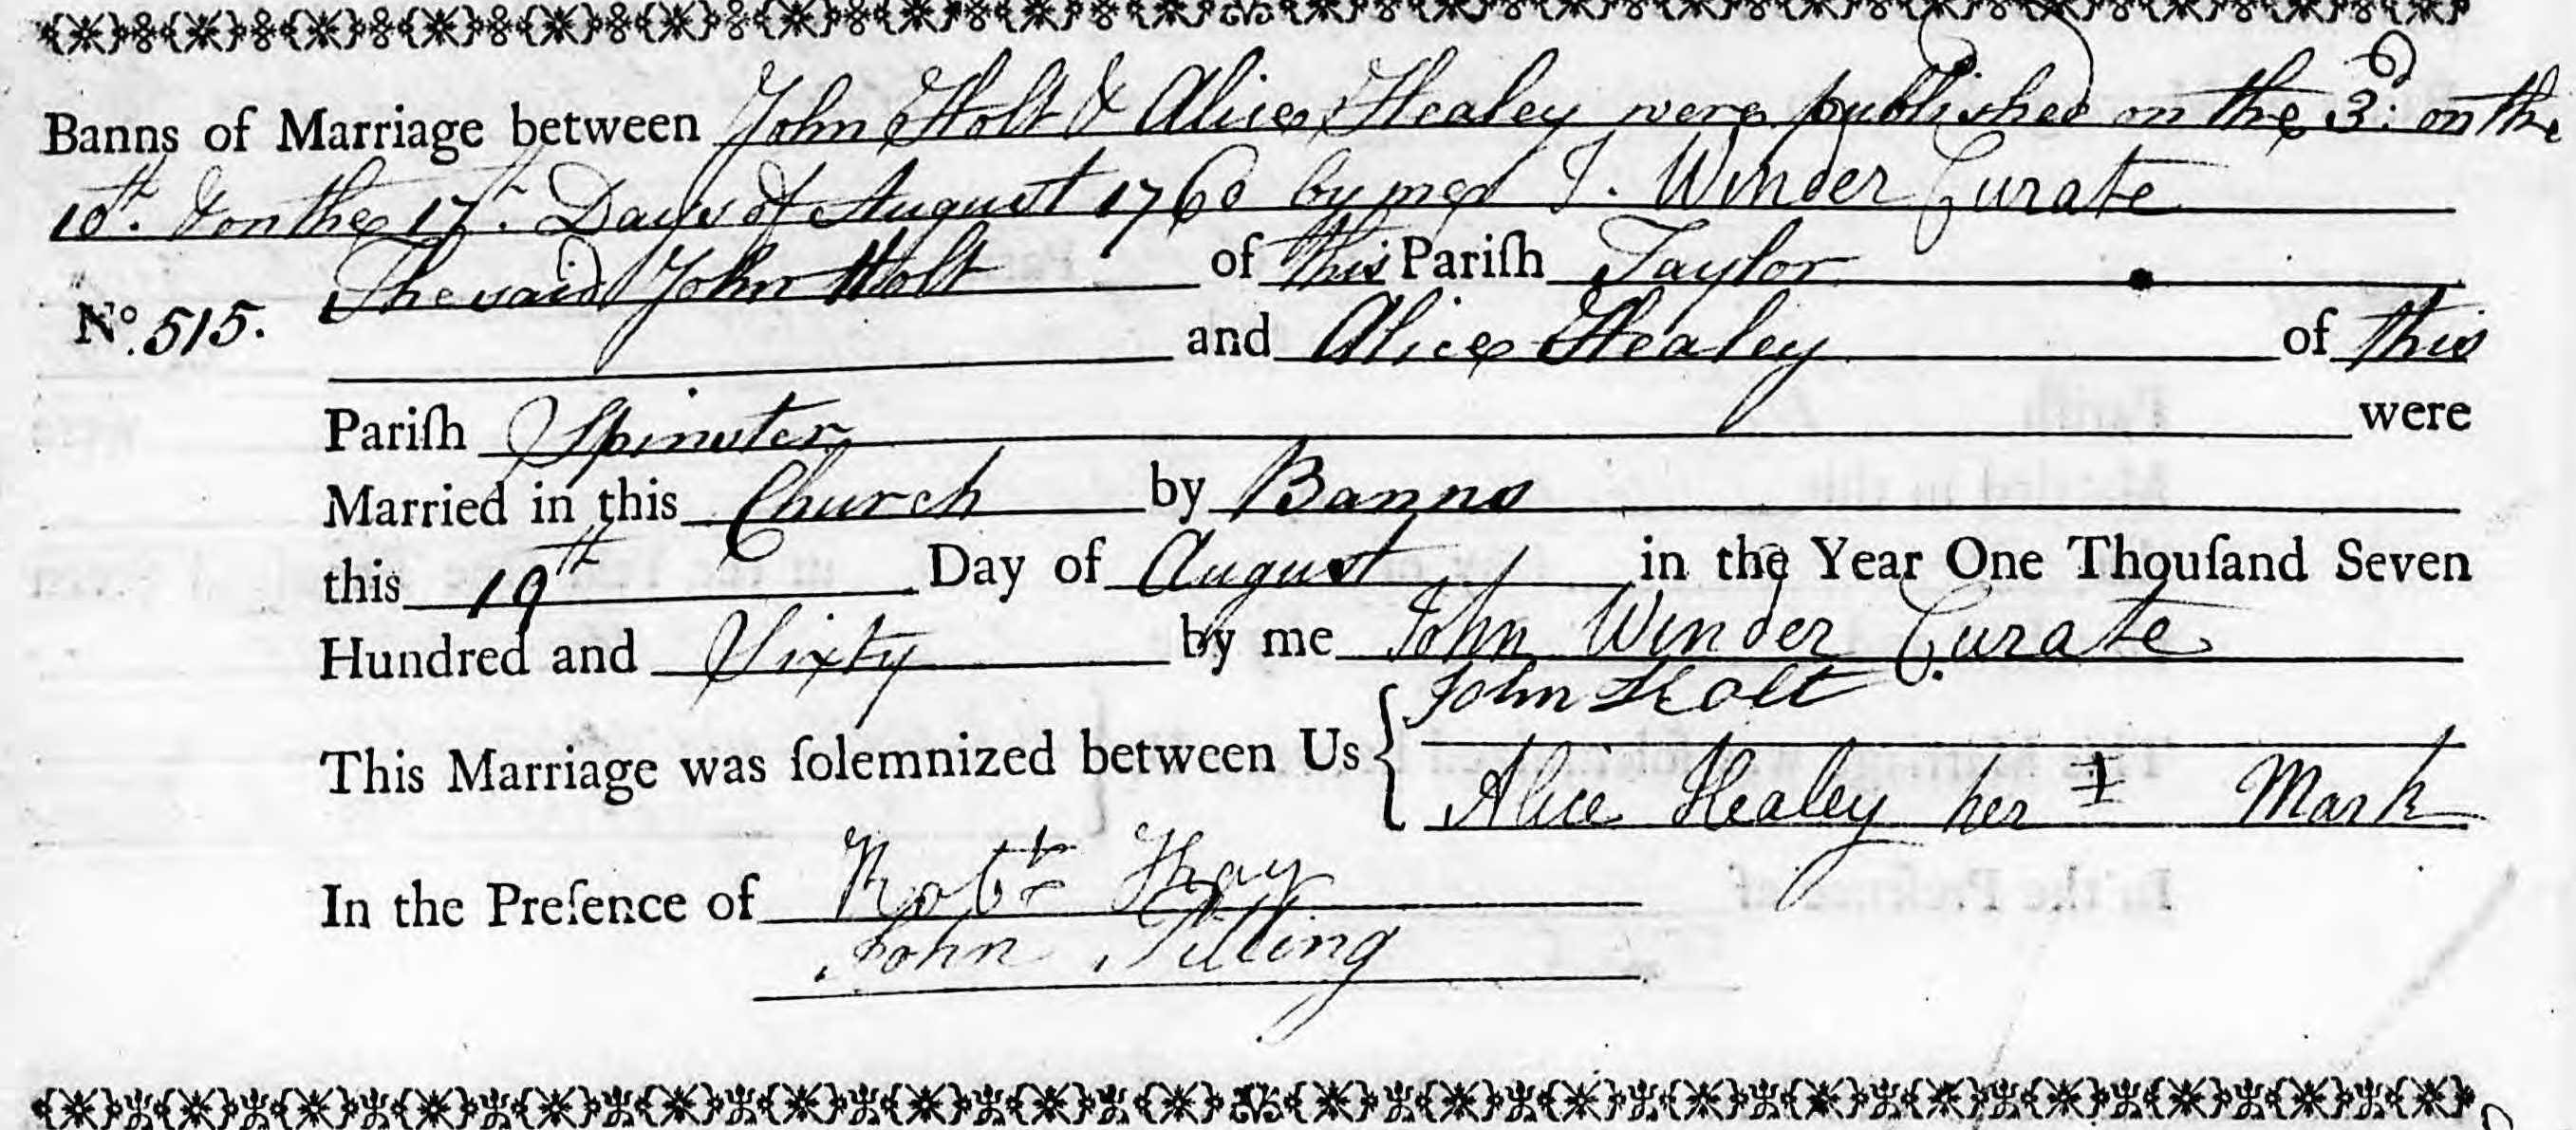 Banns of Marriage between John Holt & Alice Healey were published on the 3d: on the
10th. & on the 17th. Days of August 1760 by me J. Winder Curate
The said John Holt of this Pariſh Taylor
No. 515. and Alice Healey of this
Pariſh Spinster were
Married in this Church by Banns
this 19th Day of August in the Year One Thouſand Seven
Hundred and Sixty by me John Winder Curate
John Holt
This Marriage was ſolemnized between Us {
Alice Healey her ‡ Mark
In the Preſence of Robt Kay
John Pilling